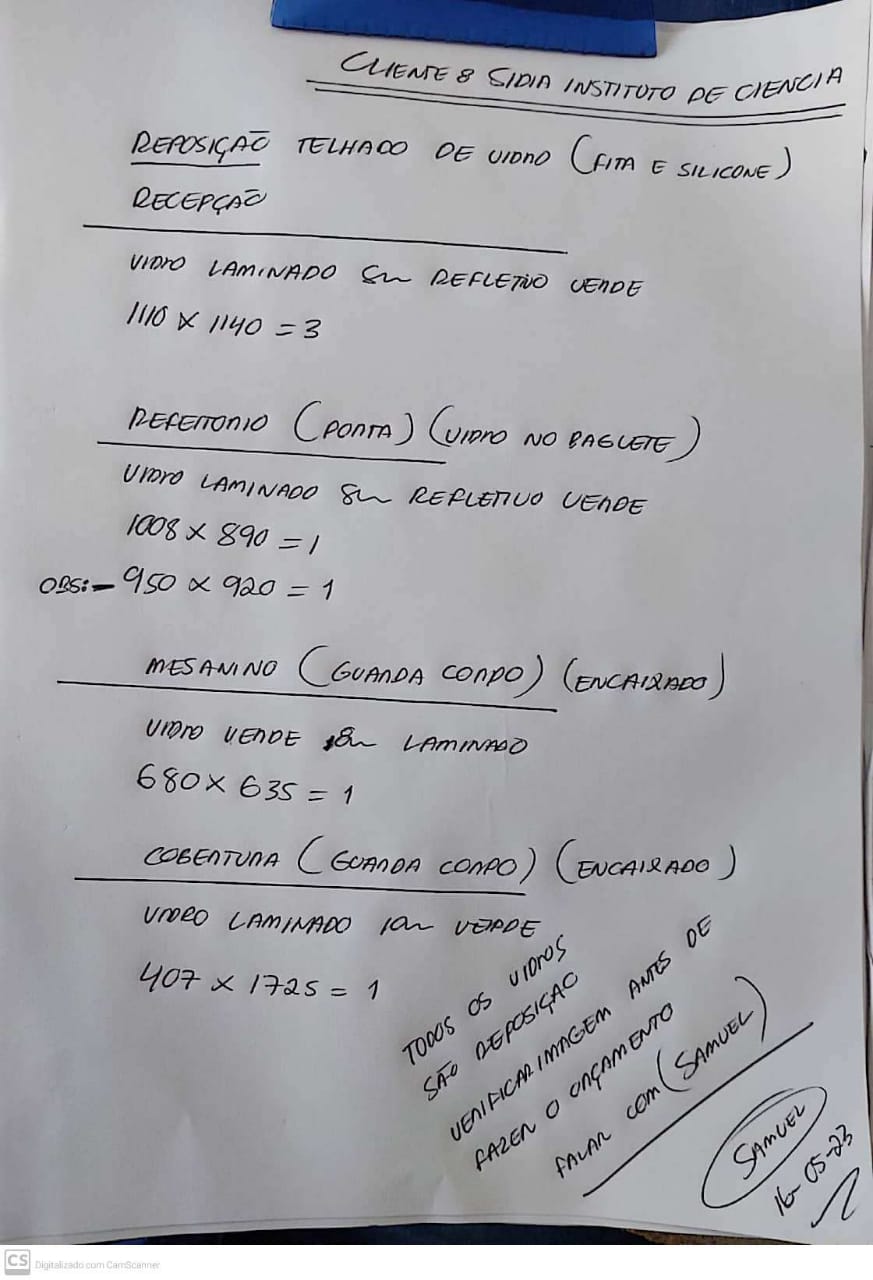 CLIENTE : SIDIA INSTITUTO DE CIENCIA
REPOSIÇÃO TELHADO DE VIDRO (FITA E SILICONE)
RECEPÇÃO
VIDRO LAMINADO 8m REFLETIVO VERDE
1110 x 1140 = 3
REFEITORIO (PORTA) (VIDRO NO BAGUETE)
VIDRO LAMINADO 8m REFLETIVO VERDE
1008 x 890 = 1
OBS:- 950 x 920 = 1
MESANINO (GUARDA CORPO) (ENCAIXADO)
VIDRO VERDE 8m LAMINADO
680 x 635 = 1
COBERTURA (GUARDA CORPO) (ENCAIXADO)
VIDRO LAMINADO 10m VERDE
407 x 1725 = 1
TODOS OS VIDROS
SÃO REPOSIÇÃO
VERIFICAR IMAGEM ANTES DE
FAZER O ORÇAMENTO
FALAR COM (SAMUEL)
SAMUEL
16-05-23
CS Digitalizado com CamScanner